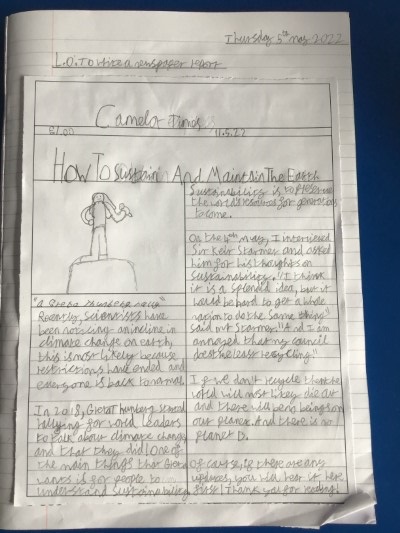 Thursday 5th may 2022
L.O. To write a newspaper report
Camelot Times
£1.00 11.5.22
How To Sustain And Maintain The Earth
"A Greta thunberg
Recently, Scientists have
been noticing an incline in
climate change on earth,
this is most likely because
restrictions have ended and
everyone is back to normal
In 2018, Greta thunberg started
rallying for world leaders
to talk about climate change
and that they did! One of
the main things that Greta
wants is for people to
understand sustainability
Sustainability is to preserve
the world's resources for generations
to come.
On the 4th May, I interviewed
Sir Keir Starmer and asked
him for his thoughts on
sustainability. "I think
it is a splendid idea, but it
would be hard to get a whole
nation to do the same thing"
said mr Starmer. "And I am
annoyed that my council
does the least recycling."
If we don't recycle then the
world will most likely die out
and there will be no beings on
our planet. And there is no
planet B.
Of course, if there are any
updates, you will hear it here
first! Thank you for reading!